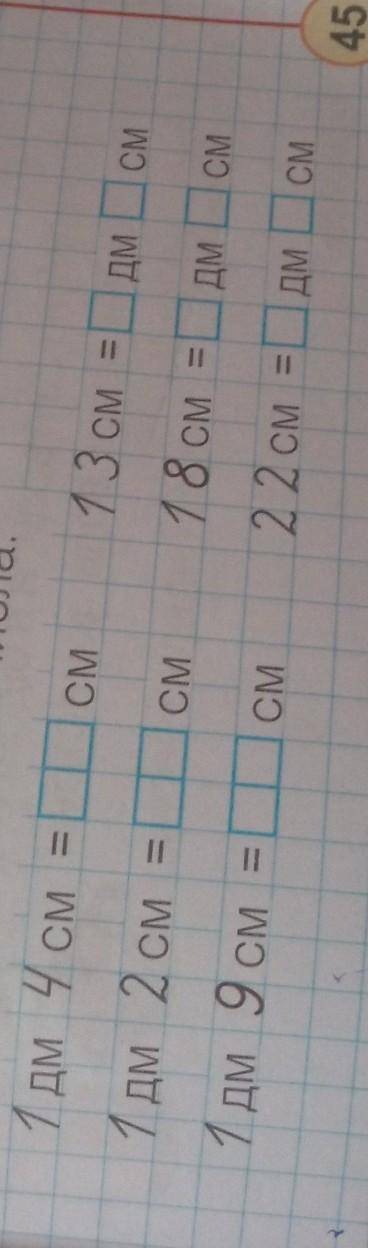 1 дм 4 см = □□ см 13 см = □ дм □ см
1 дм 2 см = □□ см 18 см = □ дм □ см
1 дм 9 см = □□ см 22 см = □ дм □ см
45